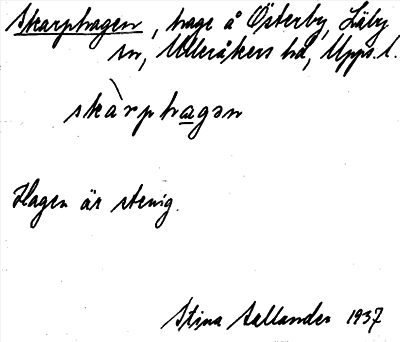 Skarphagen, hage å Österby, Läby
sn, Ulleråkers hd, Upps. l.
skàrphagən
Hagen är stenig.
Stina Sallander 1937